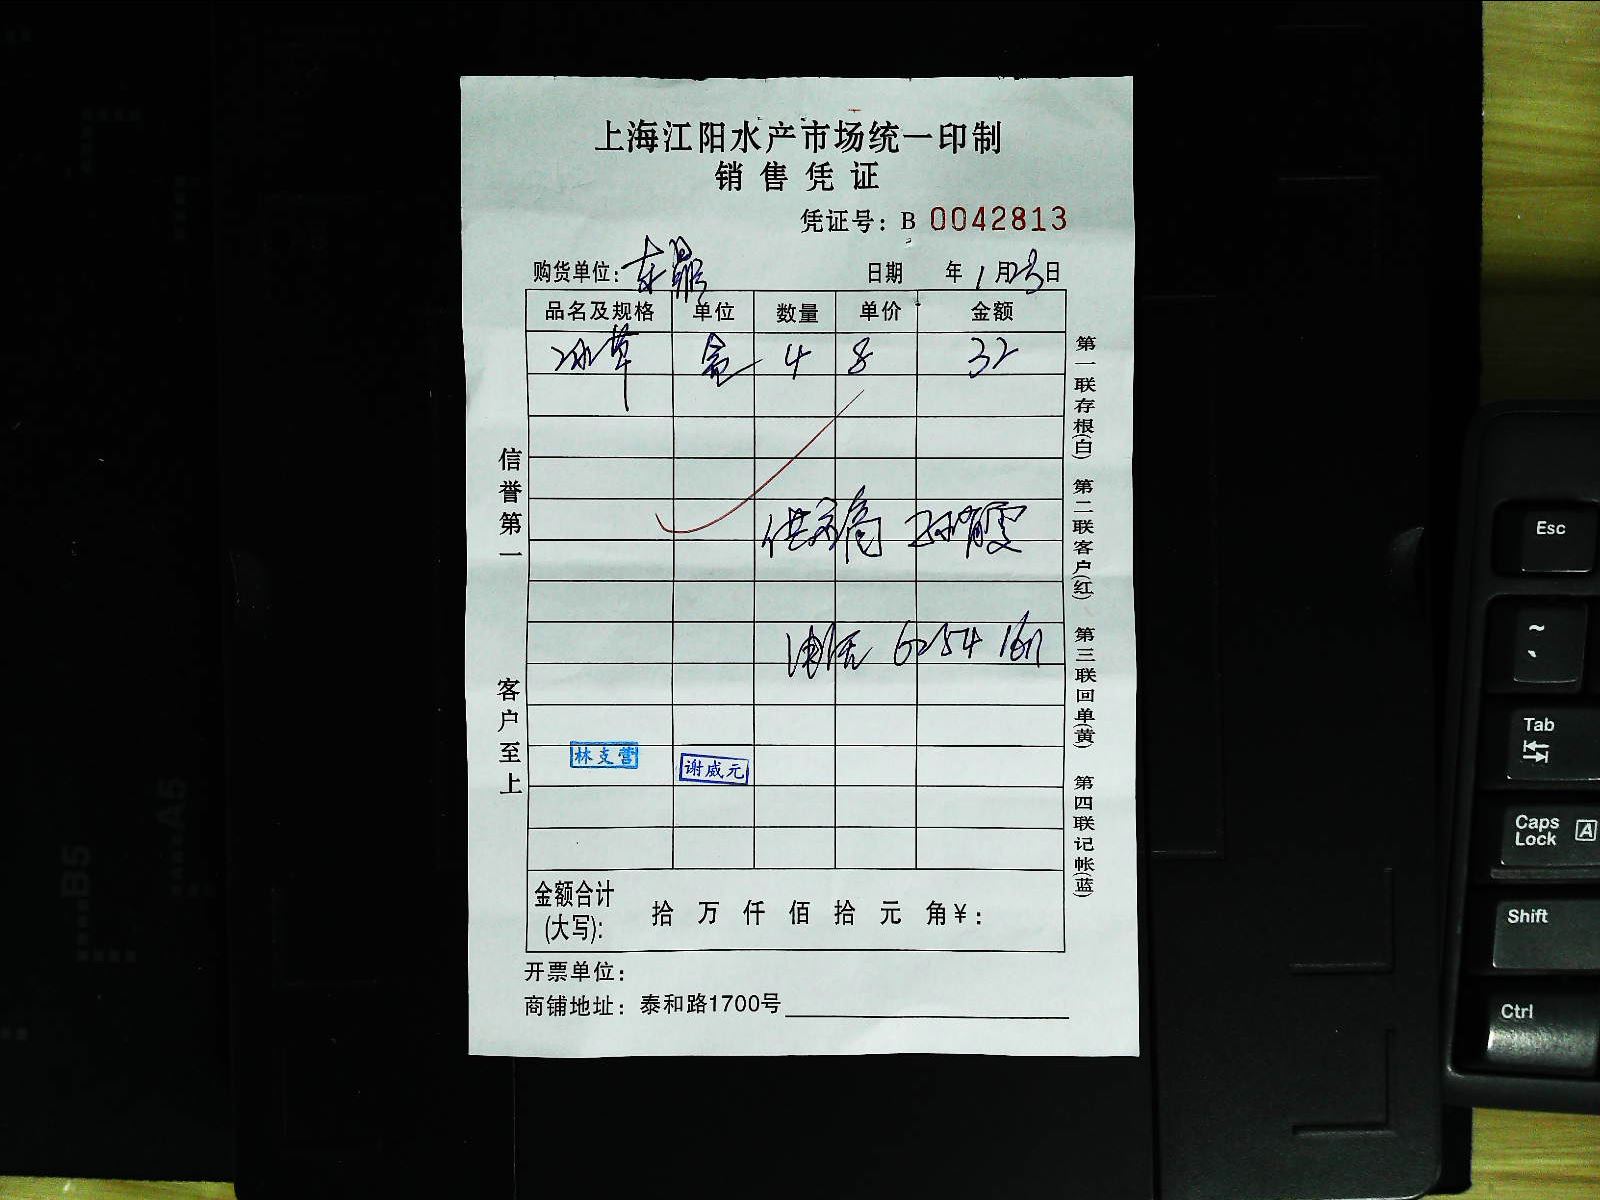 上海江阳水产市场统一印制
销售凭证
凭证号：B 0042813
购货单位：东鼎 日期 年 1 月 23 日
品名及规格 单位 数量 单价 金额
冰草 盒 4 8 32
供应商 孙有雯
电话 6254
林支营
谢威元
金额合计(大写): 拾 万 仟 佰 拾 元 角 ¥：
开票单位：
商铺地址：泰和路1700号
信誉第一
客户至上
第一联存根(白) 第二联客户(红) 第三联回单(黄) 第四联记帐(蓝)
B5
A5
Esc
~
Tab
Caps Lock A
Shift
Ctrl